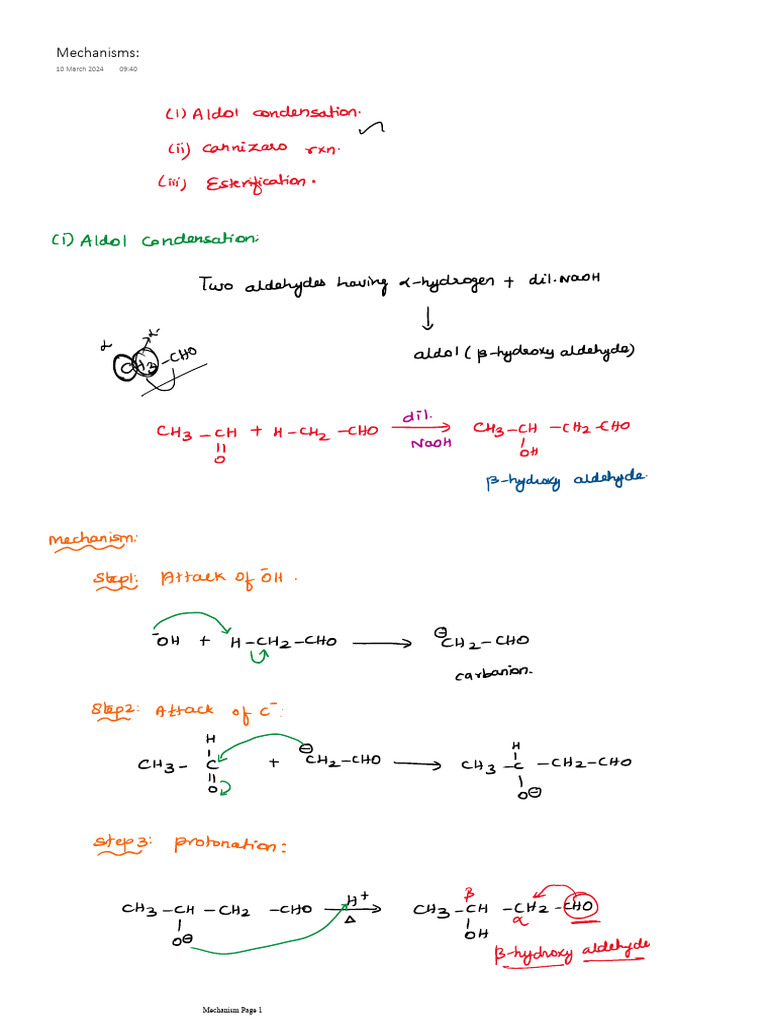 Mechanisms:
10 March 2024 09:40
(i) Aldol condensation.
(ii) Cannizaro rxn.
(iii) Esterification.
(i) Aldol condensation:
Two aldehydes having α-hydrogen + dil. NaOH
↓
aldol (β-hydroxy aldehyde)
α α
CH3 -CHO
CH3 -CH + H-CH2 -CHO dil. NaOH → CH3-CH -CH2-CHO
|| |
O OH
β-hydroxy aldehyde.
Mechanism:
Step1: Attack of ⁻OH.
⁻OH + H-CH2-CHO → ⊖CH2-CHO
carbanion.
Step2: Attack of C⁻:
H H
| |
CH3- C + ⊖CH2-CHO → CH3 -C -CH2-CHO
|| |
O O⊖
Step3: Protonation:
CH3-CH-CH2 -CHO H⁺ Δ → CH3-CH -CH2 -CHO
β α
| |
O⊖ OH
β-hydroxy aldehyde
Mechanism Page 1